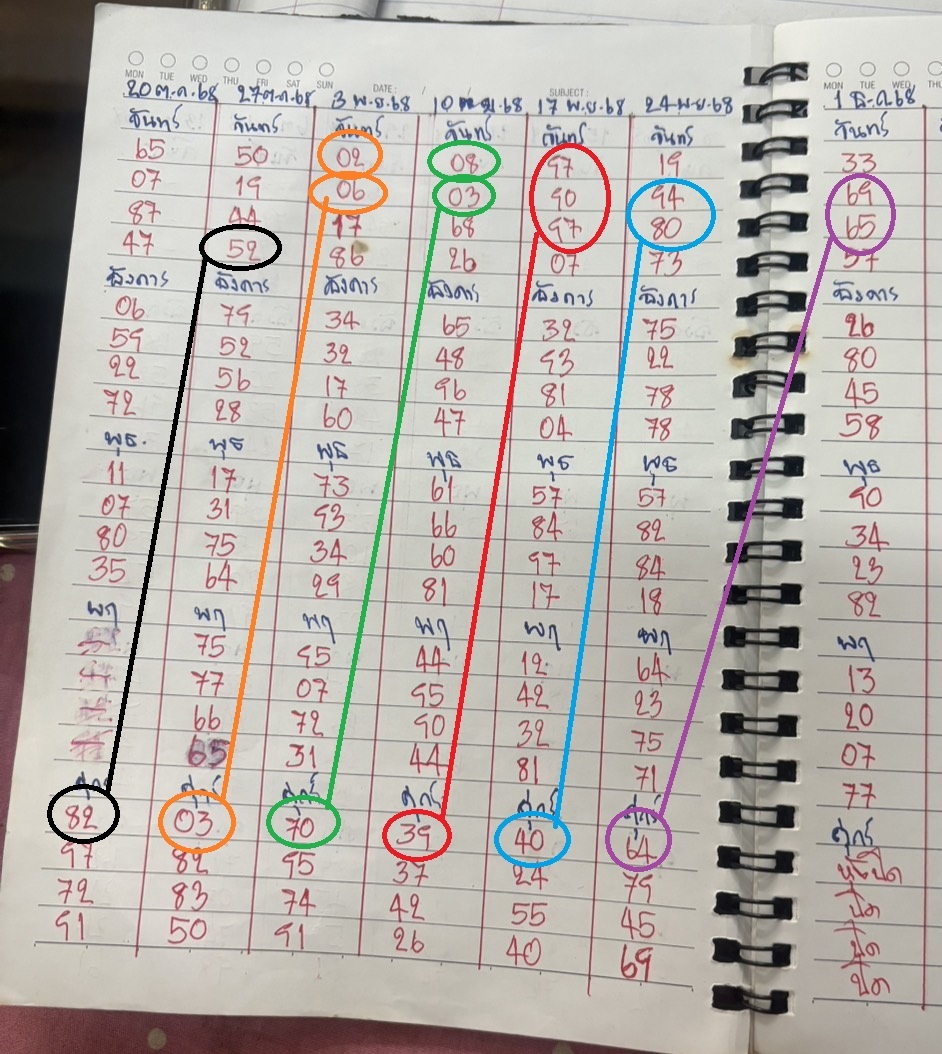 MON TUE WED THU FRI SAT SUN DATE: / / SUBJECT: MON TUE WED THU
20 ต.ค.68 27 ต.ค.68 3 พ.ย.68 10 พ.ย.68 17 พ.ย.68 24 พ.ย.68 1 ธ.ค.68
จันทร์ จันทร์ จันทร์ จันทร์ จันทร์ จันทร์ จันทร์
65 50 02 08 97 19 33
07 19 06 03 90 94 69
87 44 17 68 97 80 65
47 52 86 26 07 73 57
อังคาร อังคาร อังคาร อังคาร อังคาร อังคาร อังคาร
06 79 34 65 32 75 26
59 52 32 48 93 22 80
22 56 17 96 81 78 45
72 28 60 47 04 78 58
พุธ. พุธ พุธ พุธ พุธ พุธ พุธ
11 17 73 61 57 57 90
07 31 93 66 84 82 34
80 75 34 60 97 84 23
35 64 29 81 17 18 82
พฤ พฤ พฤ พฤ พฤ พฤ พฤ
75 95 44 12 64 13
77 07 95 42 23 20
66 72 90 32 75 07
65 31 44 81 71 77
ศุกร์ ศุกร์ ศุกร์ ศุกร์ ศุกร์ ศุกร์ ศุกร์
82 03 70 39 40 64
97 82 95 37 24 79 ปิด
72 83 74 42 55 45 ปิด
91 50 91 26 40 69 ปิด